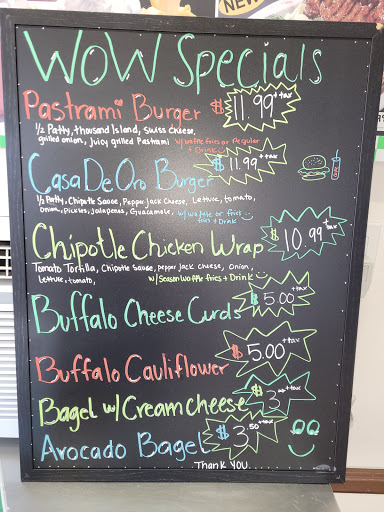 NEW
WOW Specials
Pastrami Burger $11.99 +tax
1/2 Patty, thousand Island, Swiss cheese,
grilled onion, juicy grilled Pastrami w/waffle fries or Regular
+ Drink
Casa De Oro Burger $11.99 +tax
1/2 Patty, Chipotle Sauce, Pepper jack Cheese, Lettuce, tomato,
Onion, Pickles, jalapenos, Guacamole, w/ waffle or fries
fries + Drink
Chipotle Chicken Wrap $10.99 +tax
Tomato Tortilla, Chipotle Sauce, pepper jack cheese, Onion,
Lettuce, tomato, w/ Season waffle fries + Drink
Buffalo Cheese Curds $5.00 +tax
Buffalo Cauliflower $5.00 +tax
Bagel w/ Cream Cheese $3 +tax
Avocado Bagel $3.50 +tax
Thank you